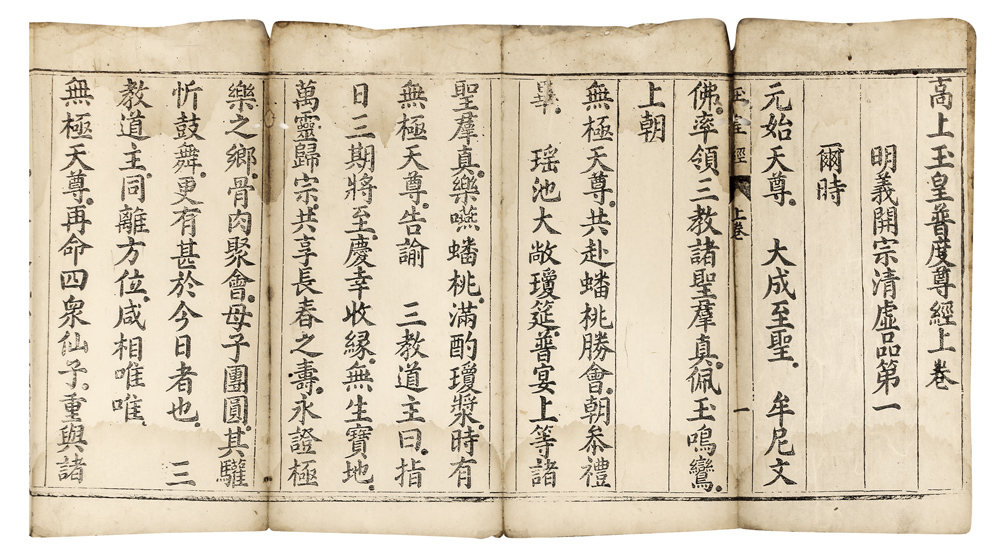 高上玉皇普度尊經上卷
明義開宗清虛品第一
爾時
元始天尊。 大成至聖。 牟尼文
玉皇經 上卷 一
佛。率領三教諸聖羣真。佩玉鳴鸞。
上朝
無極天尊。共赴蟠桃勝會。朝叅禮
畢。 瑶池大敞瓊筵。普宴上等諸
聖羣真。樂嚥蟠桃。滿酌瓊漿。時有
無極天尊。告諭 三教道主曰。指
日三期將至。慶幸收緣。無生寶地。
萬靈歸宗。共享長春之壽。永證極
樂之鄉。骨肉聚會。母子團圓。其驩
忻鼓舞。更有甚於今日者也。 三
教道主。同離方位。咸相唯唯。
無極天尊。再命四衆仙子。重與諸